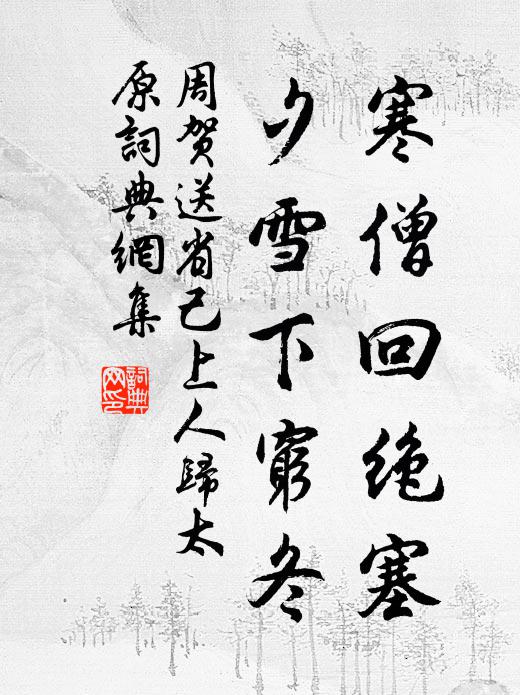 寒僧回绝塞
夕雪下窮冬
周贺送省己上人歸太
原詞典網集
詞典网印